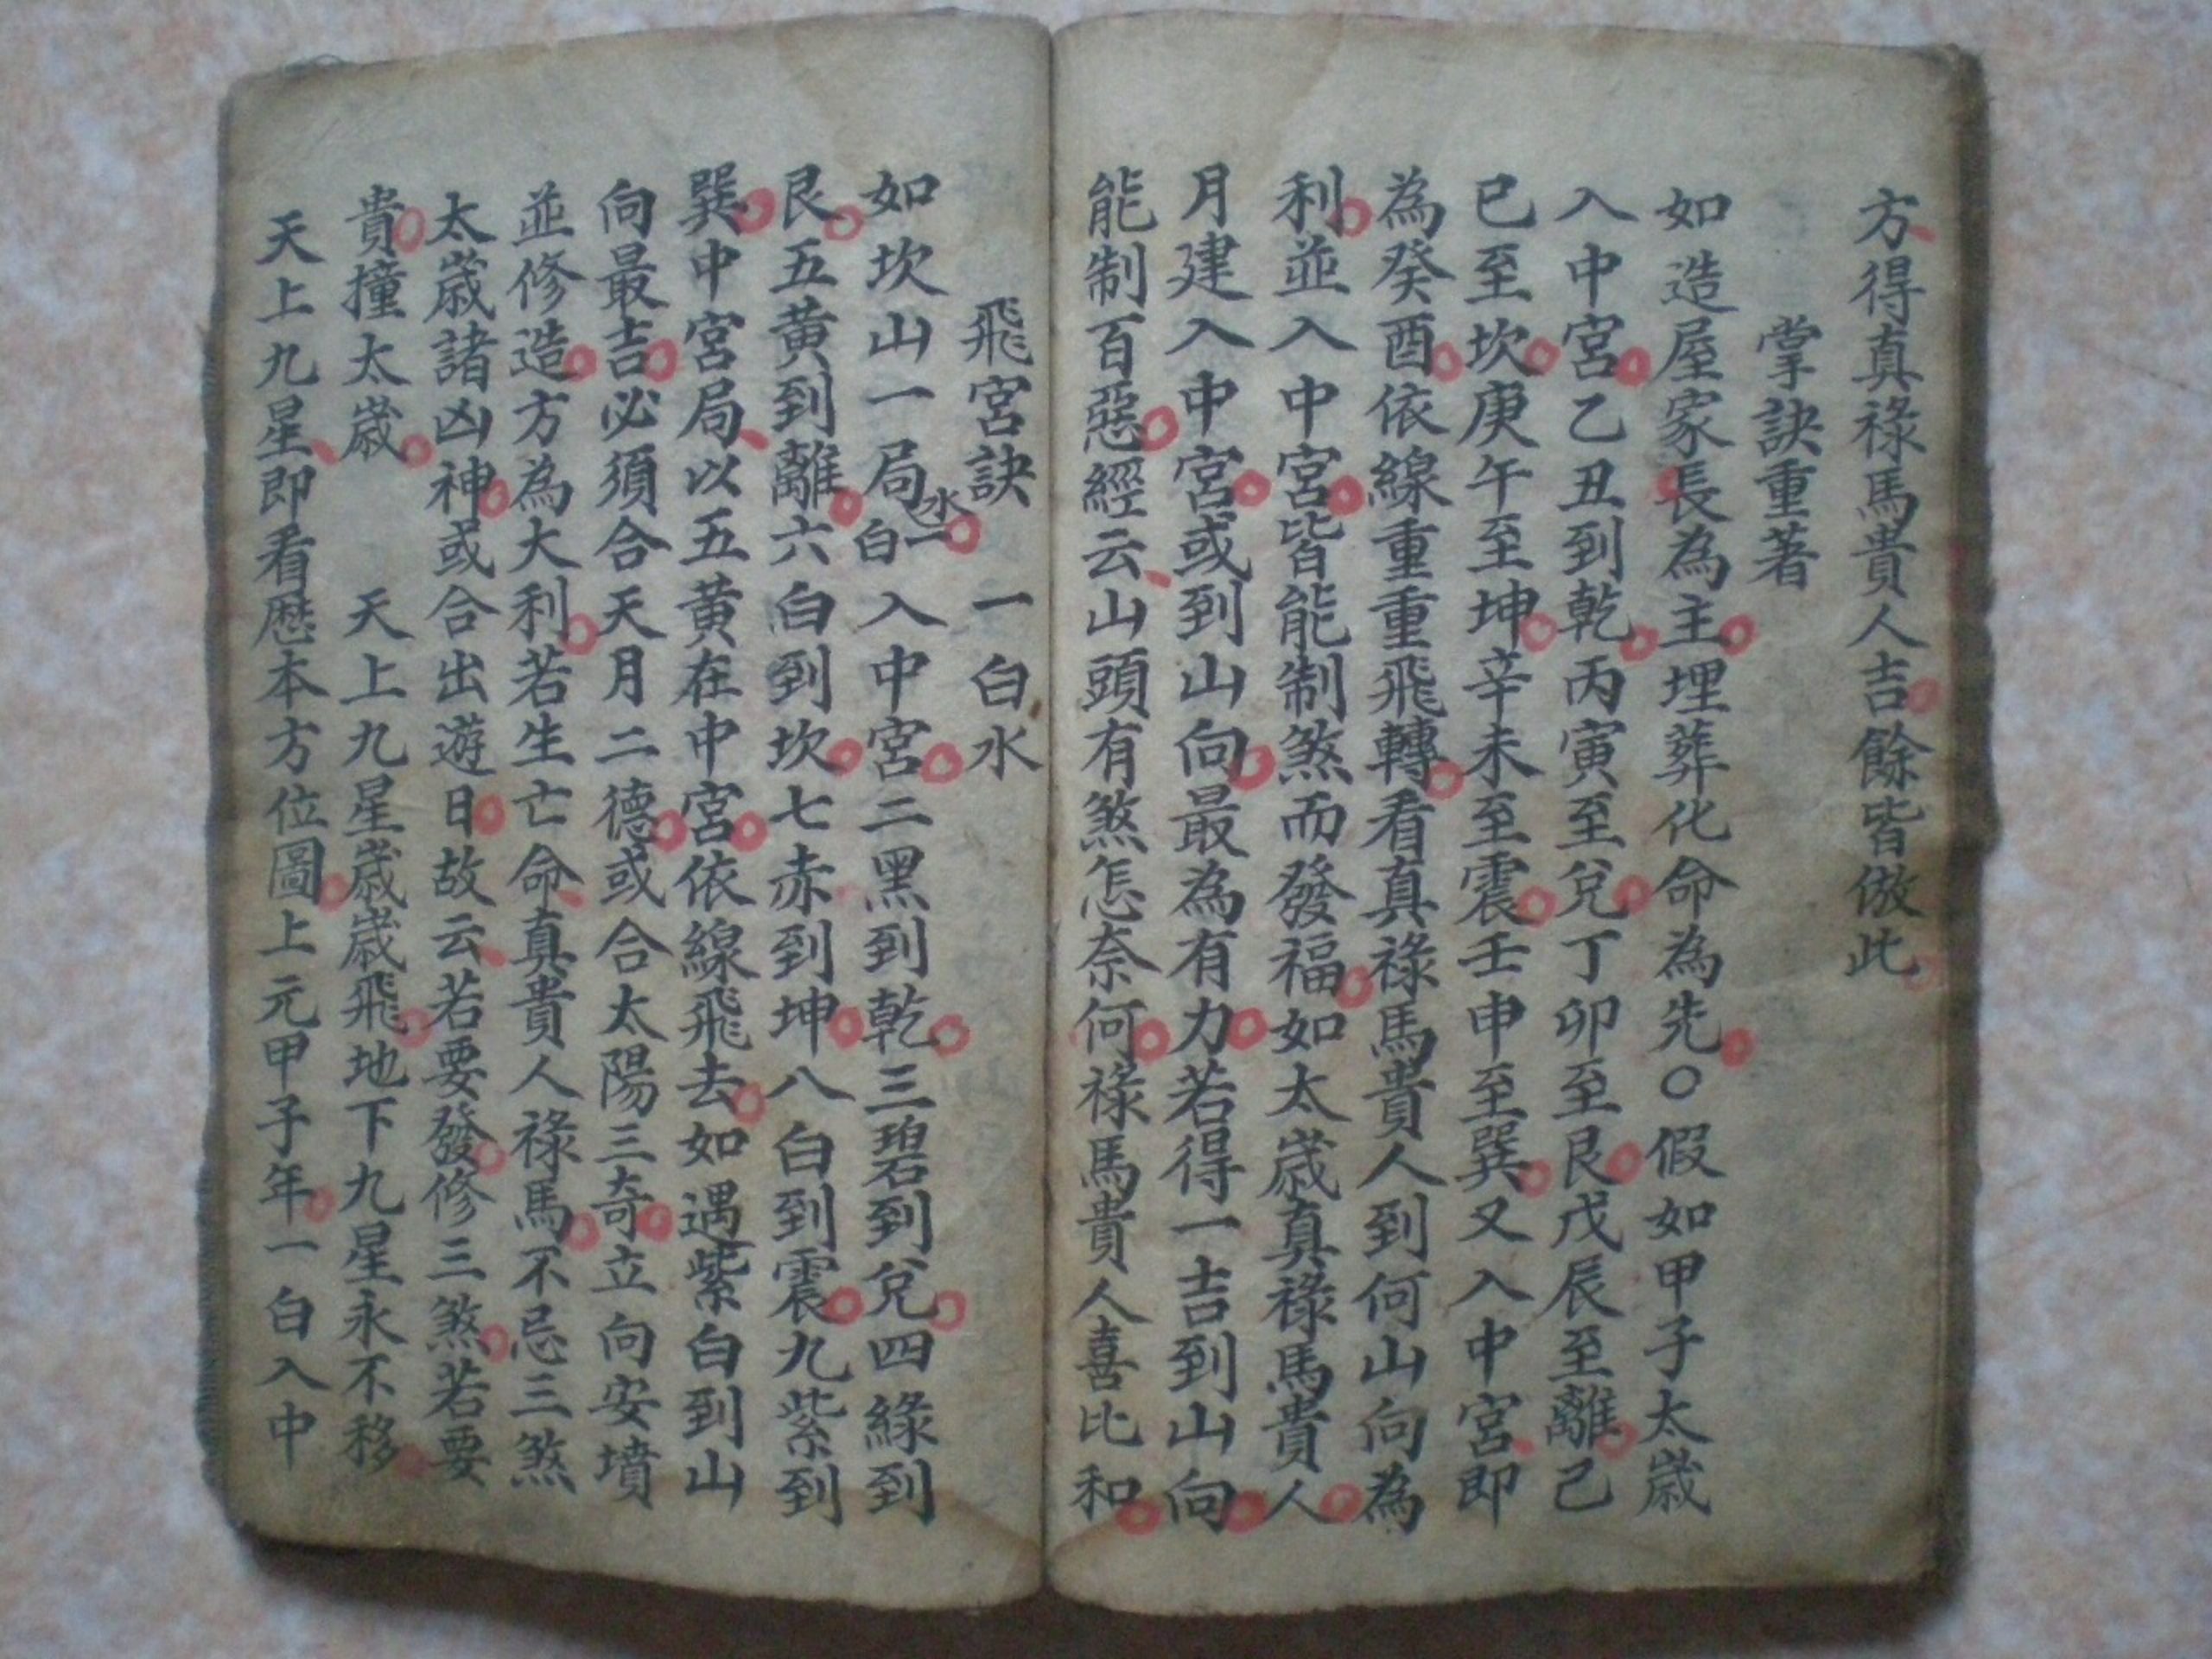 方得真祿馬貴人吉餘皆倣此
掌訣重著
如造屋家長為主埋葬化命為先○假如甲子太歲
入中宮乙丑到乾丙寅至兌丁卯至艮戊辰至離己
巳至坎庚午至坤辛未至震壬申至巽又入中宮即
為癸酉依線重重飛轉看真祿馬貴人到何山向為
利並入中宮皆能制煞而發福如太歲真祿馬貴人
月建入中宮或到山向最為有力若得一吉到山向
能制百惡經云山頭有煞怎奈何祿馬貴人喜比和
飛宮訣 一白水
如坎山一局水一白入中宮二黑到乾三碧到兌四綠到
艮五黃到離六白到坎七赤到坤八白到震九紫到
巽中宮局以五黃在中宮依線飛去如遇紫白到山
向最吉必須合天月二德或合太陽三奇立向安墳
並修造方為大利若生亡命真貴人祿馬不忌三煞
太歲諸凶神或合出遊日故云若要發修三煞若要
貴撞太歲 天上九星歲歲飛地下九星永不移
天上九星即看歷本方位圖上元甲子年一白入中